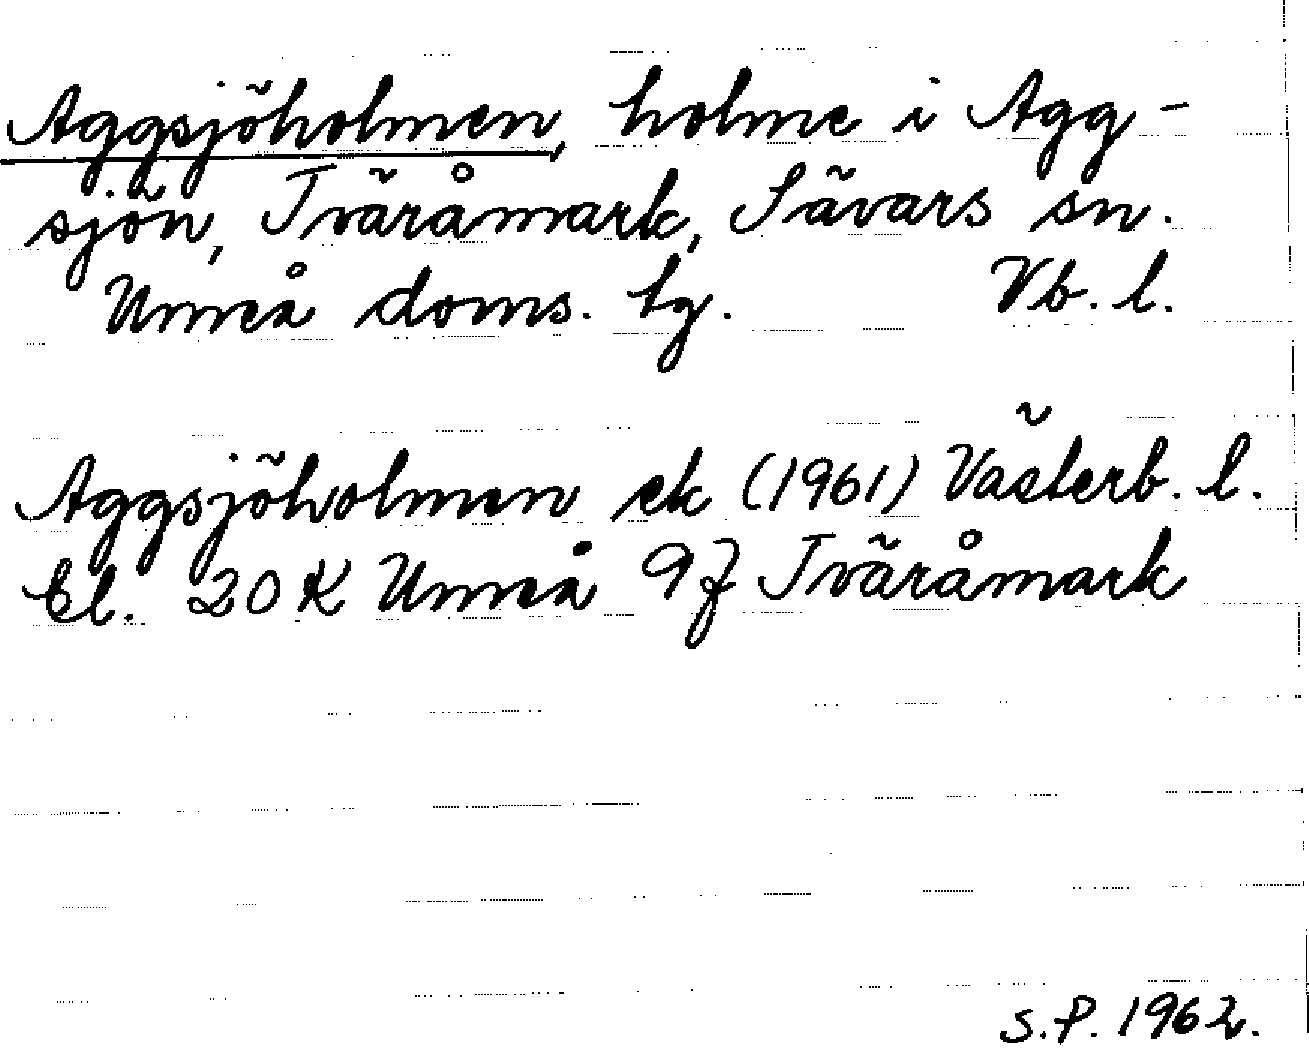 Aggsjöholmen, holme i Agg-
sjön, Tväråmark, Sävars sn.
Umeå doms. tg. Vb. l.
Aggsjöholmen ek (1961) Västerb. l.
Bl. 20 K Umeå 9f Tväråmark
S.P. 1962.